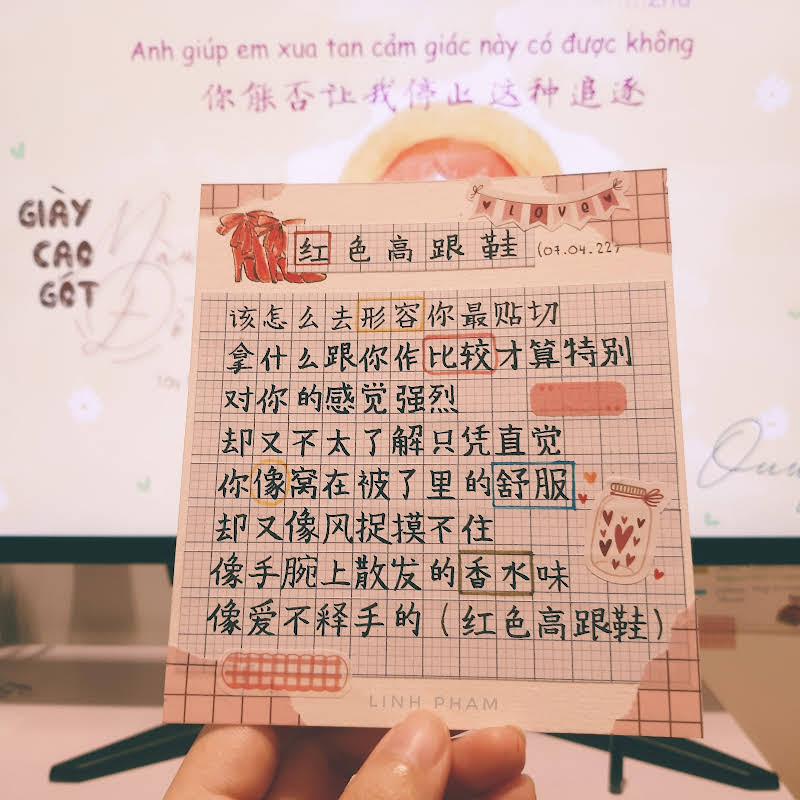 Anh giúp em xua tan cảm giác này có được không
你能否让我停止这种追逐
GIÀY
CAO
GÓT
LOVE
红色高跟鞋 (07.04.22)
该怎么去形容你最贴切
拿什么跟你作比较才算特别
对你的感觉强烈
却又不太了解只凭直觉
你像窝在被了里的舒服
却又像风捉摸不住
像手腕上散发的香水味
像爱不释手的（红色高跟鞋）
LINH PHAM